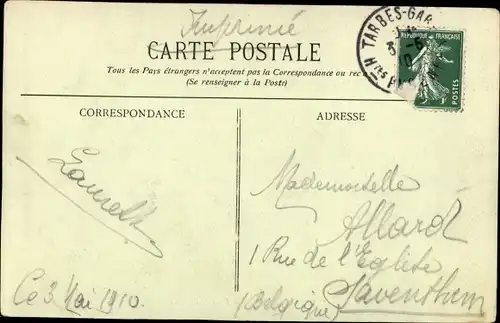 Imprimé
CARTE POSTALE
Tous les Pays étrangers n'acceptent pas la Correspondance au rec
(Se renseigner à la Poste)
TARBES-GAR
REPUBLIQUE FRANÇAISE
POSTES
CORRESPONDANCE
ADRESSE
Ce 3 Mai 1910.
Mademoiselle
Allard
1 Rue de l'Eglise
Saventhem
(Belgique)